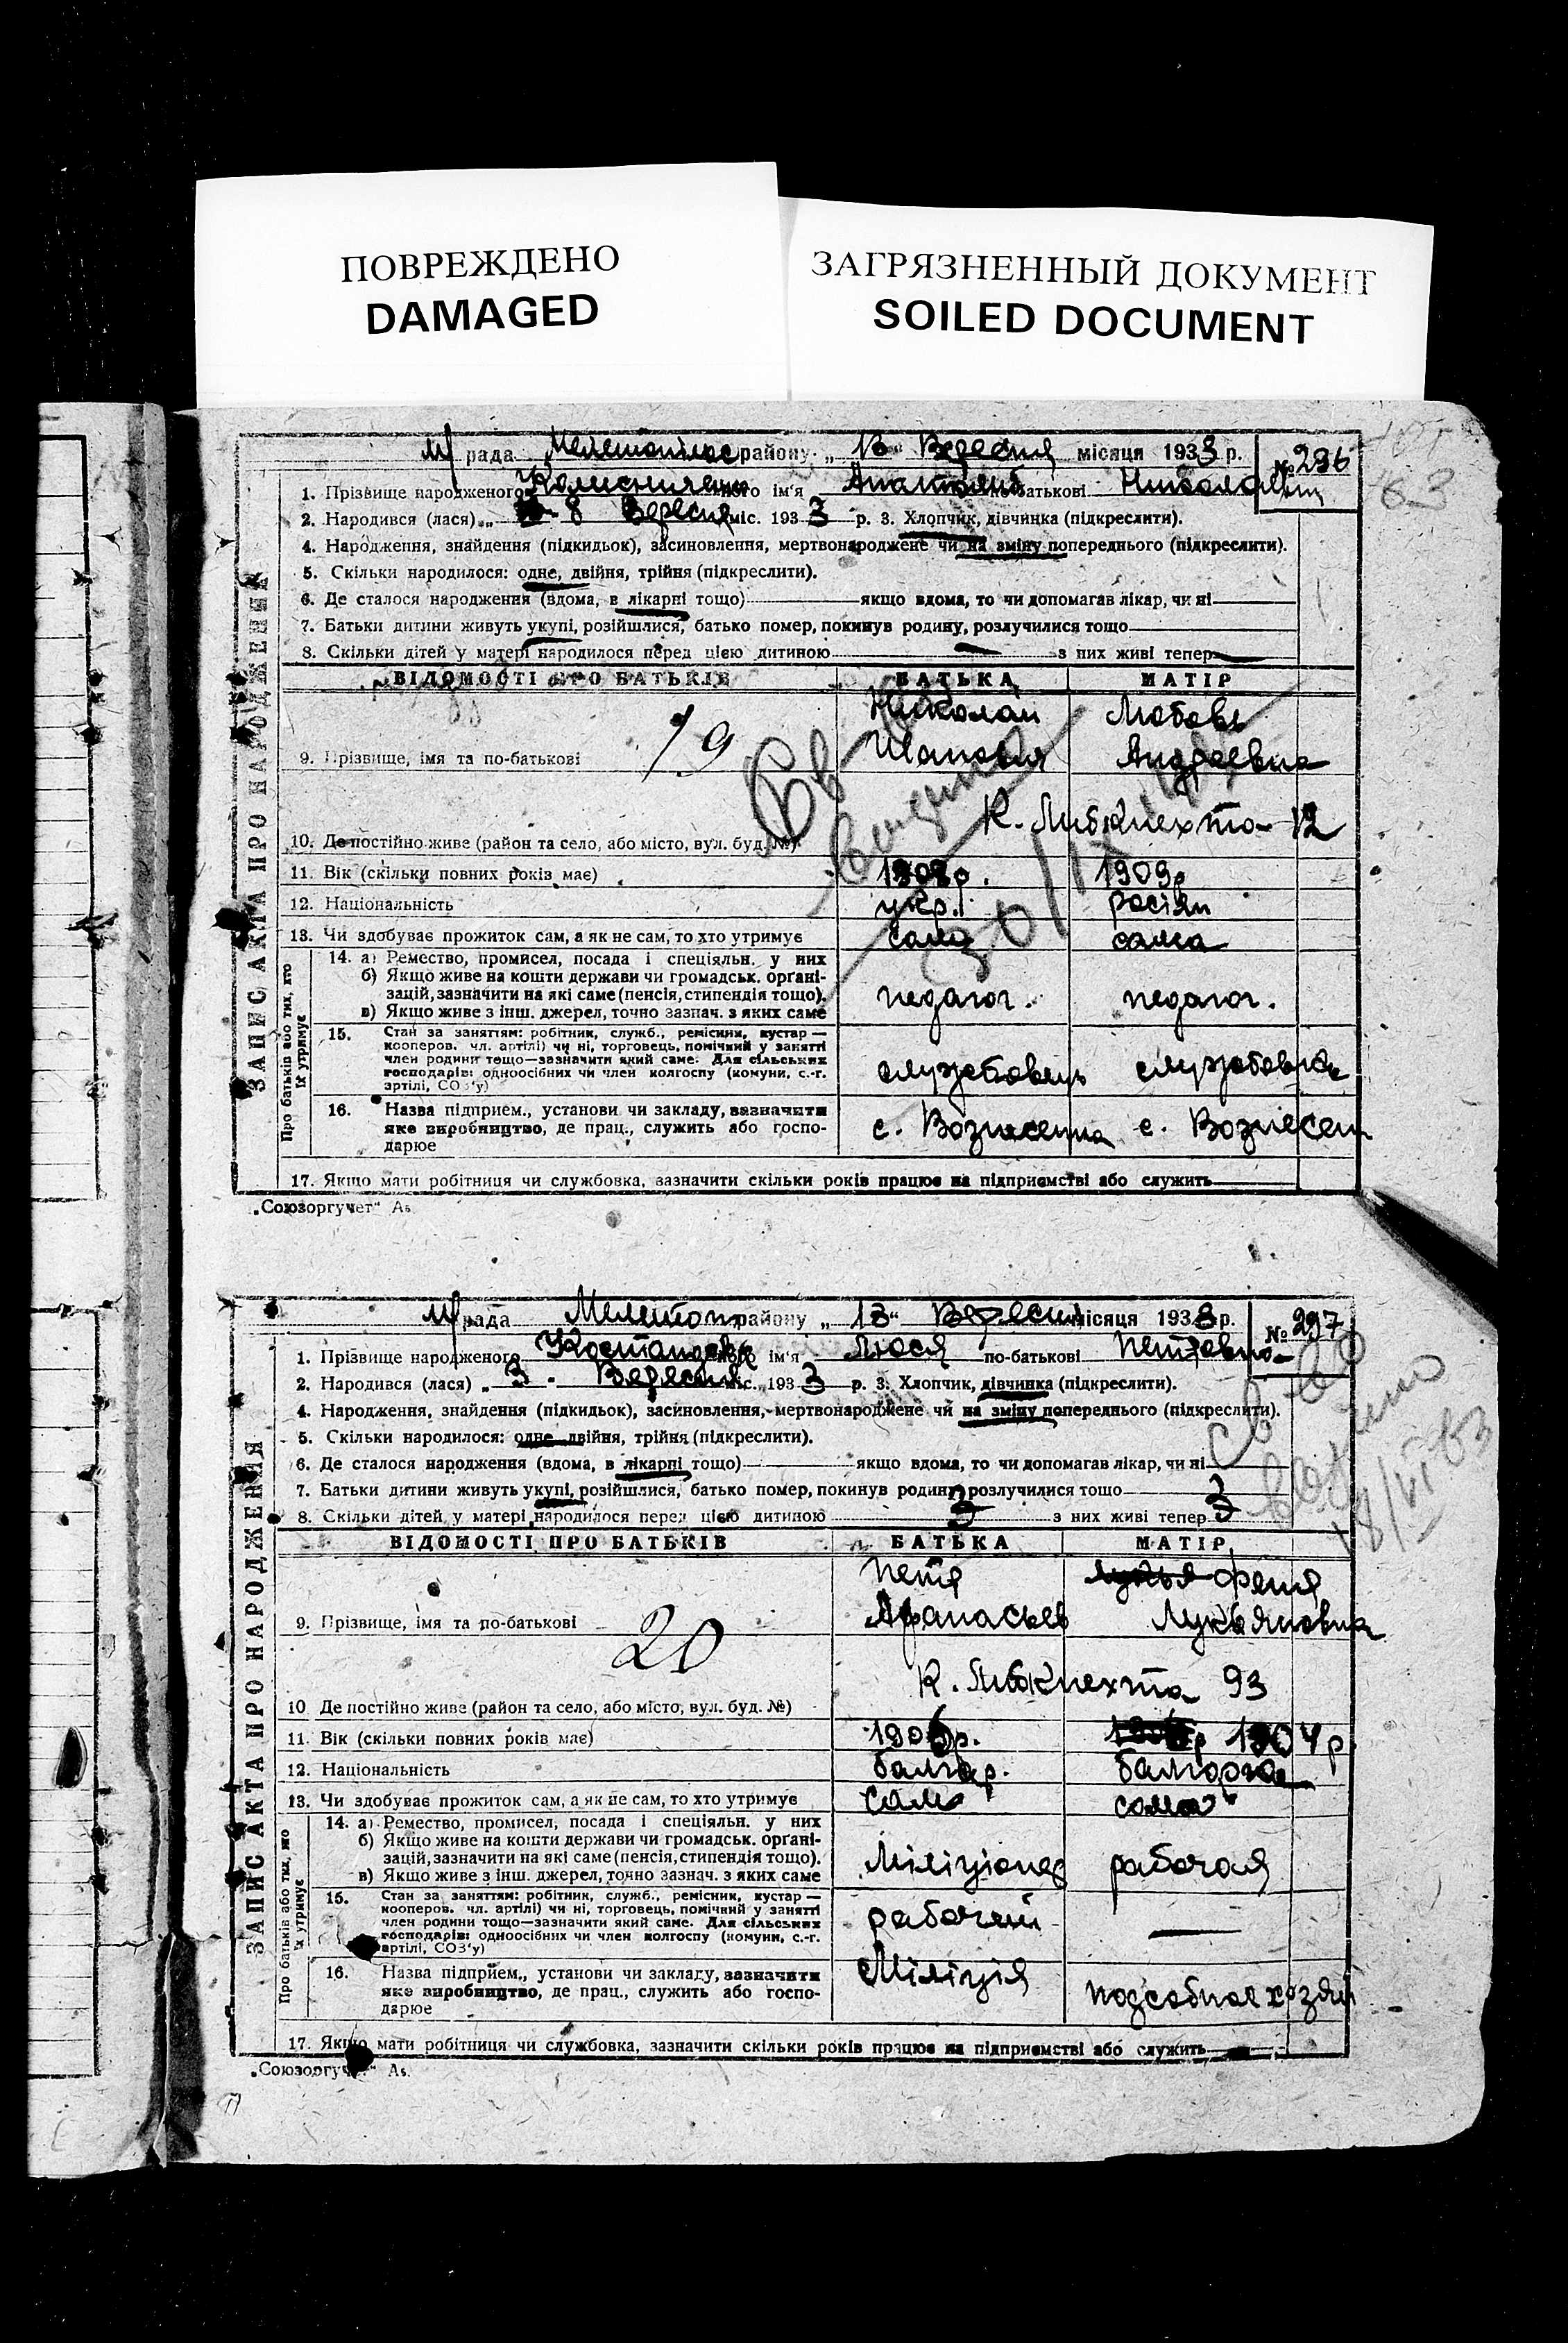 ПОВРЕЖДЕНО
DAMAGED
ЗАГРЯЗНЕННЫЙ ДОКУМЕНТ
SOILED DOCUMENT
ЗАПИС АКТА ПРО НАРОДЖЕННЯ
м/рада району „13“ Вересня місяця 1933 р. №296
1. Прізвище народженого його ім'я Анатолий по-батькові
2. Народився (лася) „ 8 Вересня міс. 1933 р. 3. Хлопчик, дівчинка (підкреслити).
63
4. Народження, знайдення (підкидьок), засиновлення, мертвонароджене чи на зміну попереднього (підкреслити).
5. Скільки народилося: одне, двійня, трійня (підкреслити).
6. Де сталося народження (вдома, в лікарні тощо) якщо вдома, то чи допомагав лікар, чи ні
7. Батьки дитини живуть укупі, розійшлися, батько помер, покинув родину, розлучилися тощо
8. Скільки дітей у матері народилося перед цією дитиною — з них живі тепер —
ВІДОМОСТІ ПРО БАТЬКІВ БАТЬКА МАТІР
Николай Любовь
9. Прізвище, імя та по-батькові 19 Андреевна
К. Либкнехта 12
10. Де постійно живе (район та село, або місто, вул. буд. №)
11. Вік (скільки повних років має) 1909р
12. Національність укр. росіян
13. Чи здобуває прожиток сам, а як не сам, то хто утримує сам сама
Про батьків або тих, хто їх утримує
14. а) Ремество, промисел, посада і спеціяльн. у них
б) Якщо живе на кошти держави чи громадськ. органі-
зацій, зазначити на які саме (пенсія, стипендія тощо). педагог. педагог.
в) Якщо живе з інш. джерел, точно зазнач. з яких саме
15. Стан за заняттям: робітник, служб., ремісник, кустар —
кооперов. чл. артілі) чи ні, торговець, помічний у занятті
член родини тощо—зазначити який саме. Для сільських
господарів: одноосібних чи член колгоспу (комуни, с.-г. службовець службовка
артілі, СОЗ'у)
16. Назва підприєм., установи чи закладу, зазначити
яке виробництво, де прац., служить або госпо- с. Вознесенка с. Вознесен
дарює
17. Якщо мати робітниця чи службовка, зазначити скільки років працює на підприємстві або служить
„Союзоргучет“
ЗАПИС АКТА ПРО НАРОДЖЕННЯ
м/рада Мелитоп району „13“ Вересня місяця 1933 р. №297
1. Прізвище народженого його ім'я Люся по-батькові Петровна
2. Народився (лася) „3 Вересня міс. 1933 р. 3. Хлопчик, дівчинка (підкреслити).
4. Народження, знайдення (підкидьок), засиновлення, мертвонароджене чи на зміну попереднього (підкреслити).
5. Скільки народилося: одне, двійня, трійня (підкреслити).
6. Де сталося народження (вдома, в лікарні тощо) якщо вдома, то чи допомагав лікар, чи ні
7. Батьки дитини живуть укупі, розійшлися, батько помер, покинув родину, розлучилися тощо
8. Скільки дітей у матері народилося перед цією дитиною 3 з них живі тепер 3
ВІДОМОСТІ ПРО БАТЬКІВ БАТЬКА МАТІР
Петя Феня
9. Прізвище, імя та по-батькові 20 Афанасьев Лукьяновна
К. Либкнехта 93
10 Де постійно живе (район та село, або місто, вул. буд. №)
11. Вік (скільки повних років має) 1906р. 1904р
12. Національність болгар. болгарка
13. Чи здобуває прожиток сам, а як не сам, то хто утримує сам сама
Про батьків або тих, що їх утримує
14. а) Ремество, промисел, посада і спеціяльн. у них
б) Якщо живе на кошти держави чи громадськ. органі-
зацій, зазначити на які саме (пенсія, стипендія тощо). Міліціонер рабочая
в) Якщо живе з інш. джерел, точно зазнач. з яких саме
15. Стан за заняттям: робітник, служб., ремісник, кустар —
кооперов. чл. артілі) чи ні, торговець, помічний у занятті
член родини тощо—зазначити який саме. Для сільських рабочий —
господарів: одноосібних чи член колгоспу (комуни, с.-г.
артілі, СОЗ'у)
16. Назва підприєм., установи чи закладу, зазначити Міліція
яке виробництво, де прац., служить або госпо- подсобное хозяй
дарює
17. Якщо мати робітниця чи службовка, зазначити скільки років працює на підприємстві або служить
„Союзоргучет“